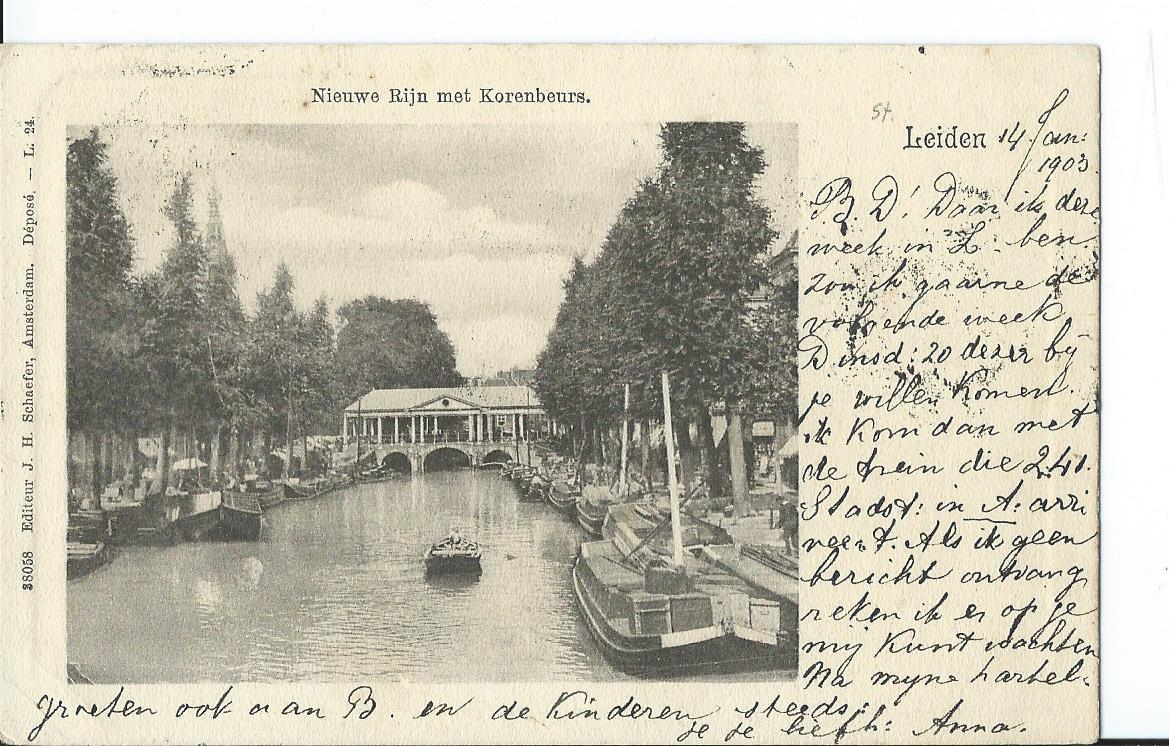 Nieuwe Rijn met Korenbeurs.
38058 Editeur J. H. Schaefer, Amsterdam. Déposé. — L. 24.
St.
Leiden 14 Jan:
1903.
B. D! Daar ik deze
week in L. ben
zou ik gaarne de
volgende week
Dinsd: 20 dezer bij
je willen komen.
ik kom dan met
de trein die 2.41.
in A: arri
veert. Als ik geen
bericht ontvang
reken ik er op je
mij kunt wachten
Na myne hartel-
groeten ook aan B. en de Kinderen steeds:
je je liefh: Anna.